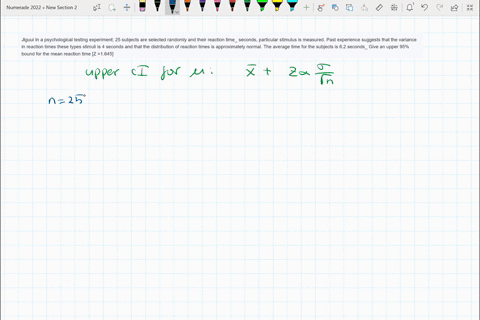 Numerade 2022 » New Section 2
.Ripurl in a psychological testing experiment; 25 subjects are selected randomly and their reaction time_ seconds, particular stimulus is measured. Past experience suggests that the variance
in reaction times these types stimuli is 4 seconds and that the distribution of reaction times is approximately normal. The average time for the subjects is 6.2 seconds_ Give an upper 95%
bound for the mean reaction time [Z =1.645]
upper CI for μ: x̄ + Zα σ/√n
n=25